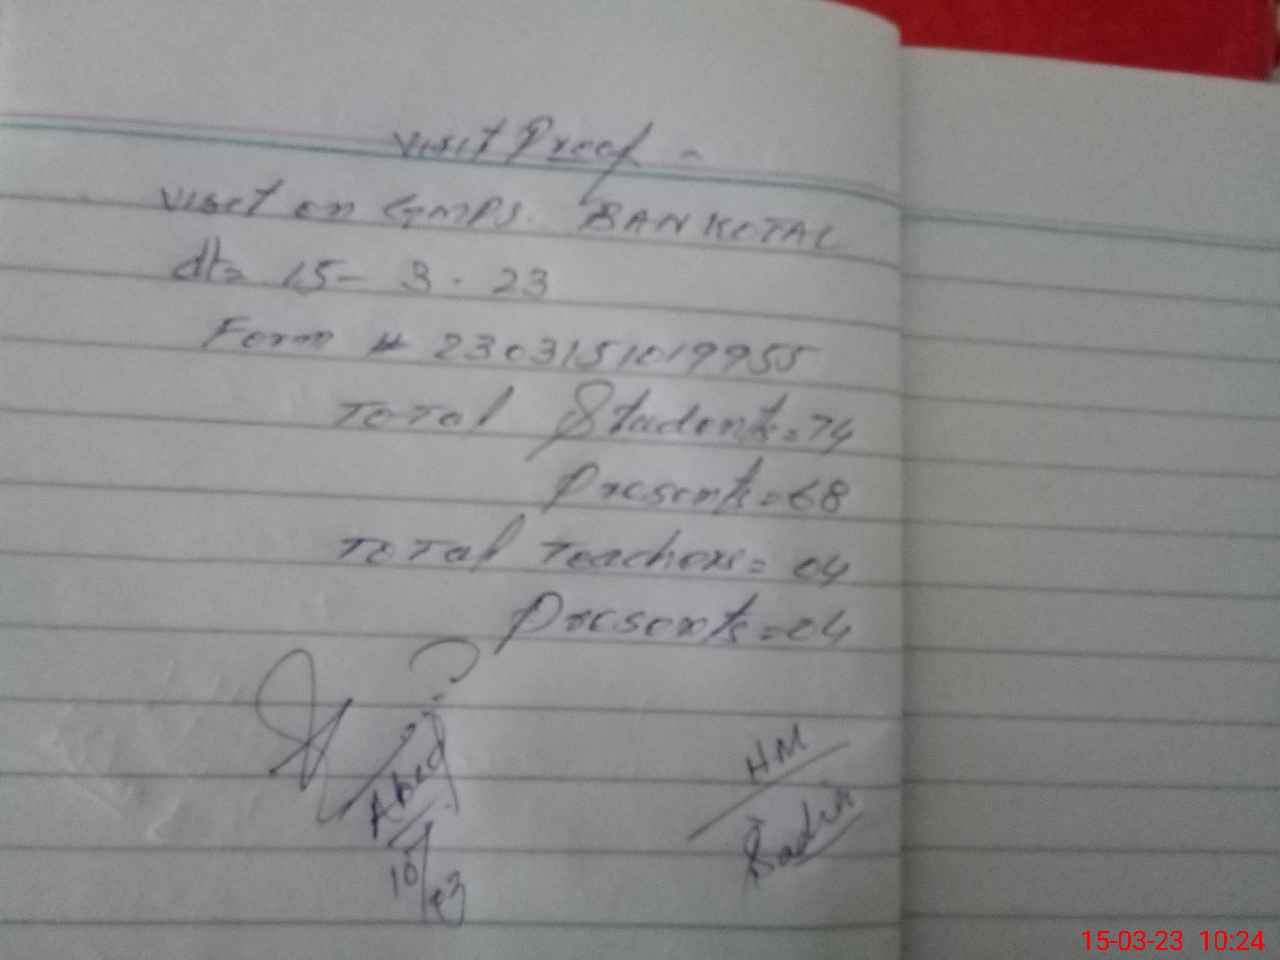 Visit Proof -
Visit on GMPS. BANKOTAL
dt= 15- 3 - 23
Form # 2303151019955
Total Students=74
Presents=68
Total Teachers= 04
Presents=04
HM
15-03-23 10:24